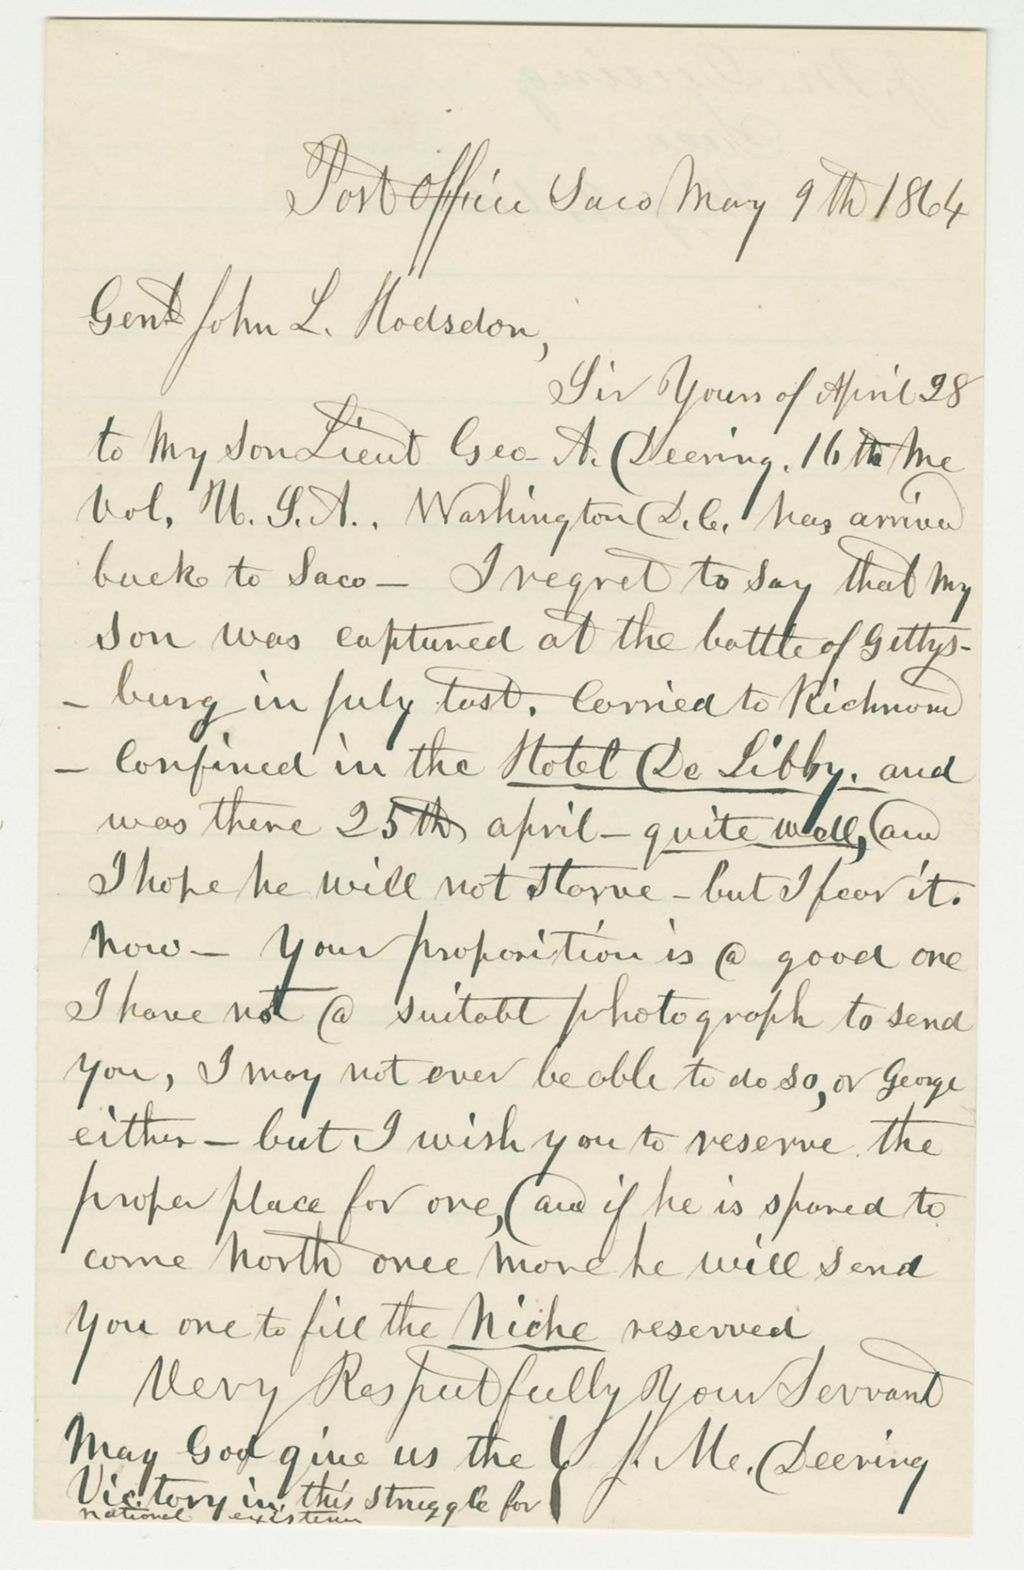 Post Office Saco May 9th 1864
Genl John L. Hodsdon,
Sir Yours of April 28
to My Son Lieut Geo. A. Deering. 16th Me
Vol, U. S. A., Washington D.C. has arrived
back to Saco — I regret to say that My
son was captured at the battle of Gettys-
- burg in July last. Carried to Richmond
- Confined in the Hotel De Libby. and
was there 25th april — quite well, and
I hope he will not starve — but I fear it.
Now — Your proposition is a good one
I have not a suitabl photograph to send
you, I may not ever be able to do so, or George
either — but I wish you to reserve the
proper place for one, and if he is spared to
come North once more he will send
you one to fill the Niche reserved
Very Respectfully Your Servant
May God give us the J. M. Deering
Victory in this struggle for
national existence